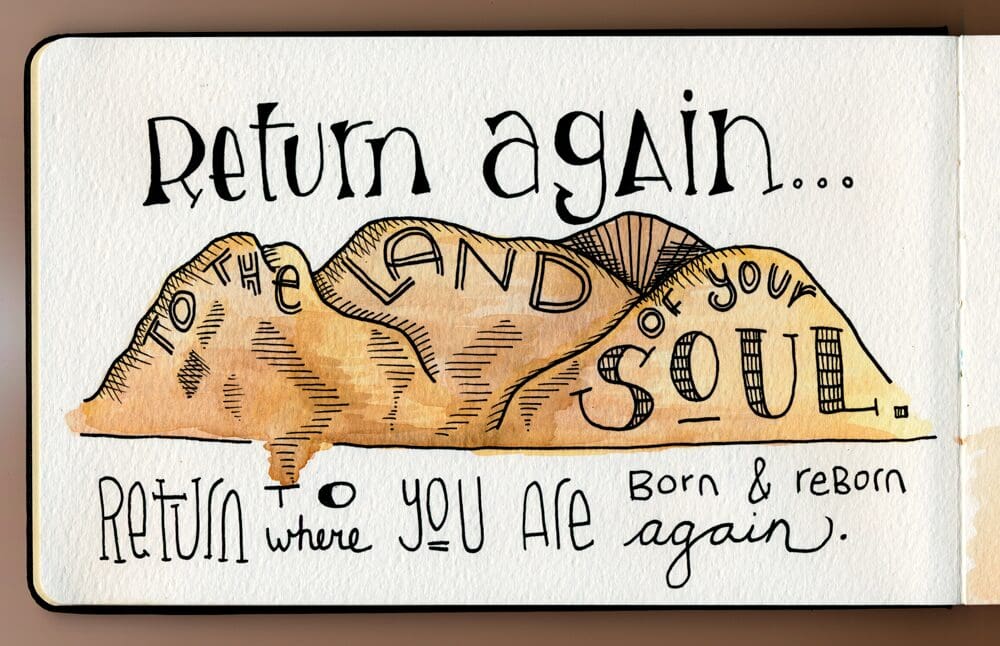 Return again...
TO THE LAND OF YOUR
SOUL.
Return TO where YOU Are Born & reBorn again.